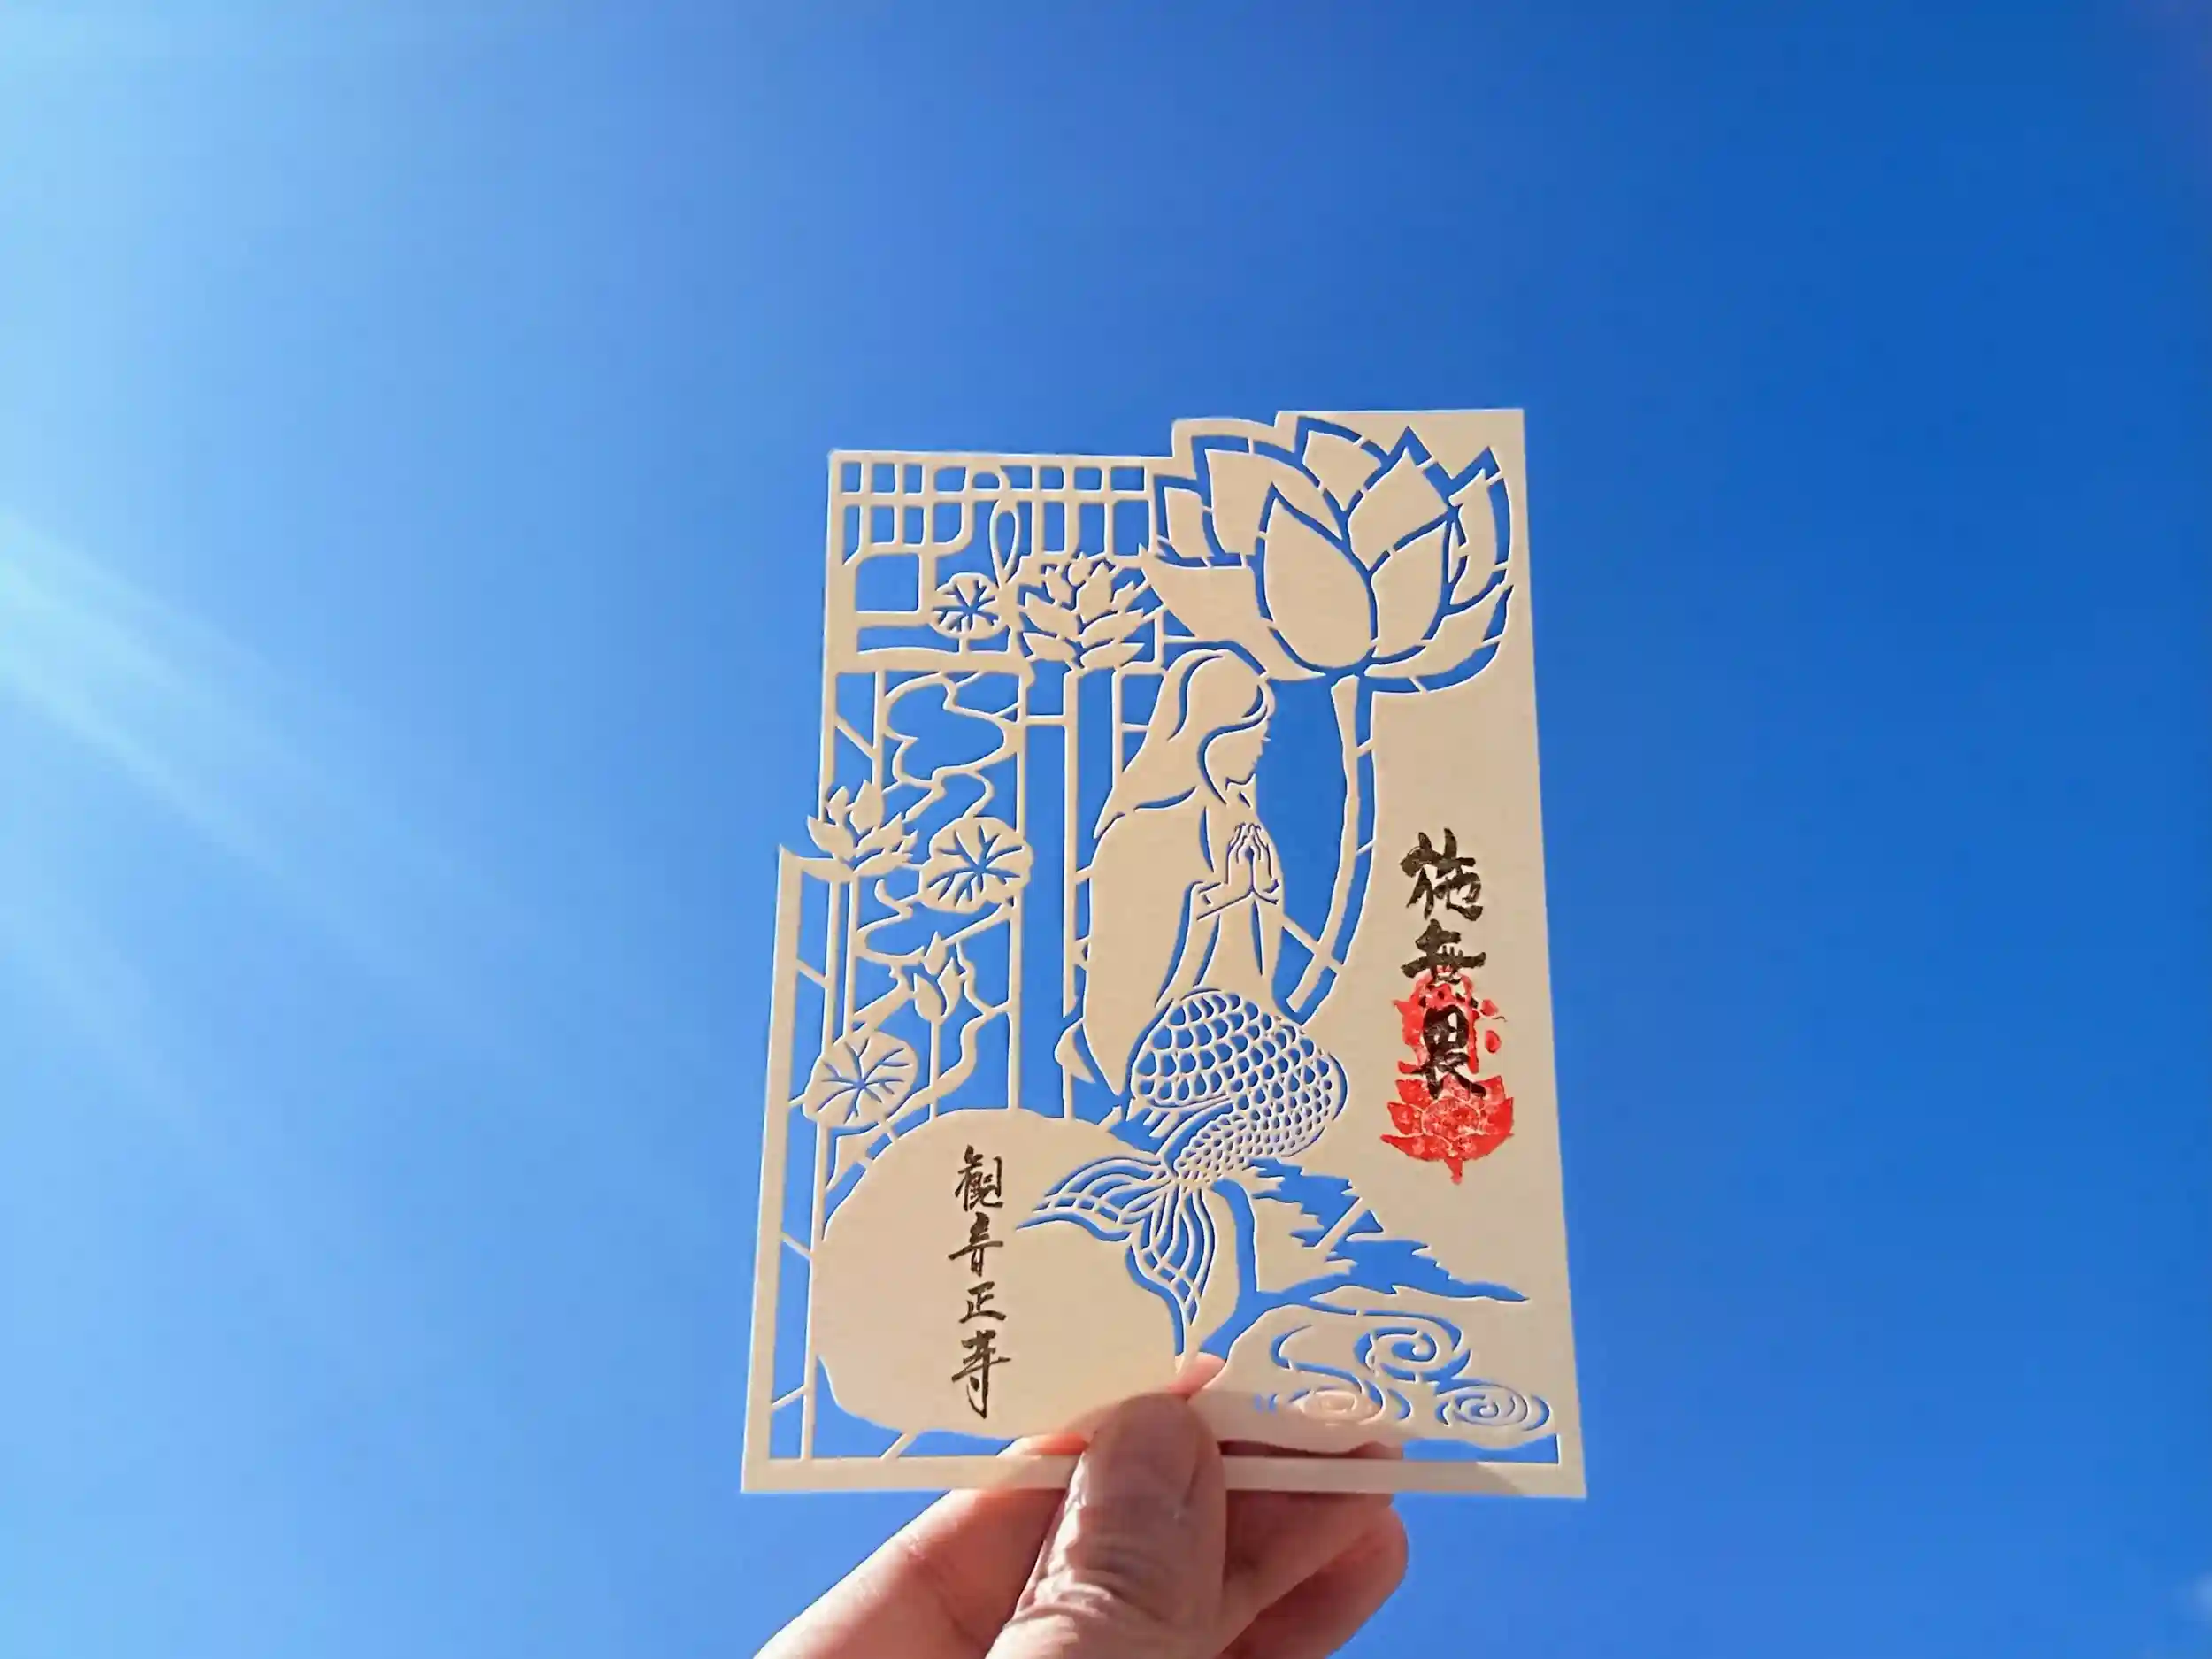 施無畏
観音正寺